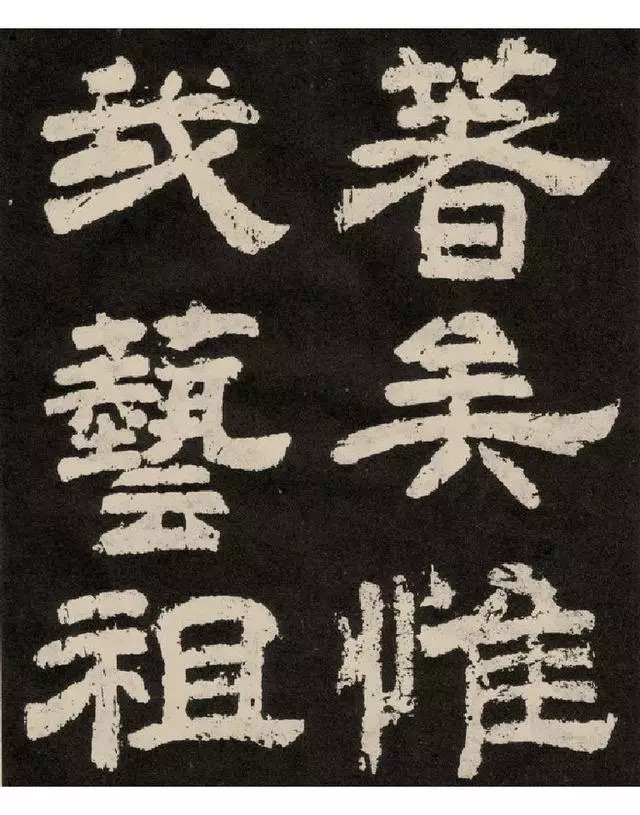 著矣惟
我藝祖